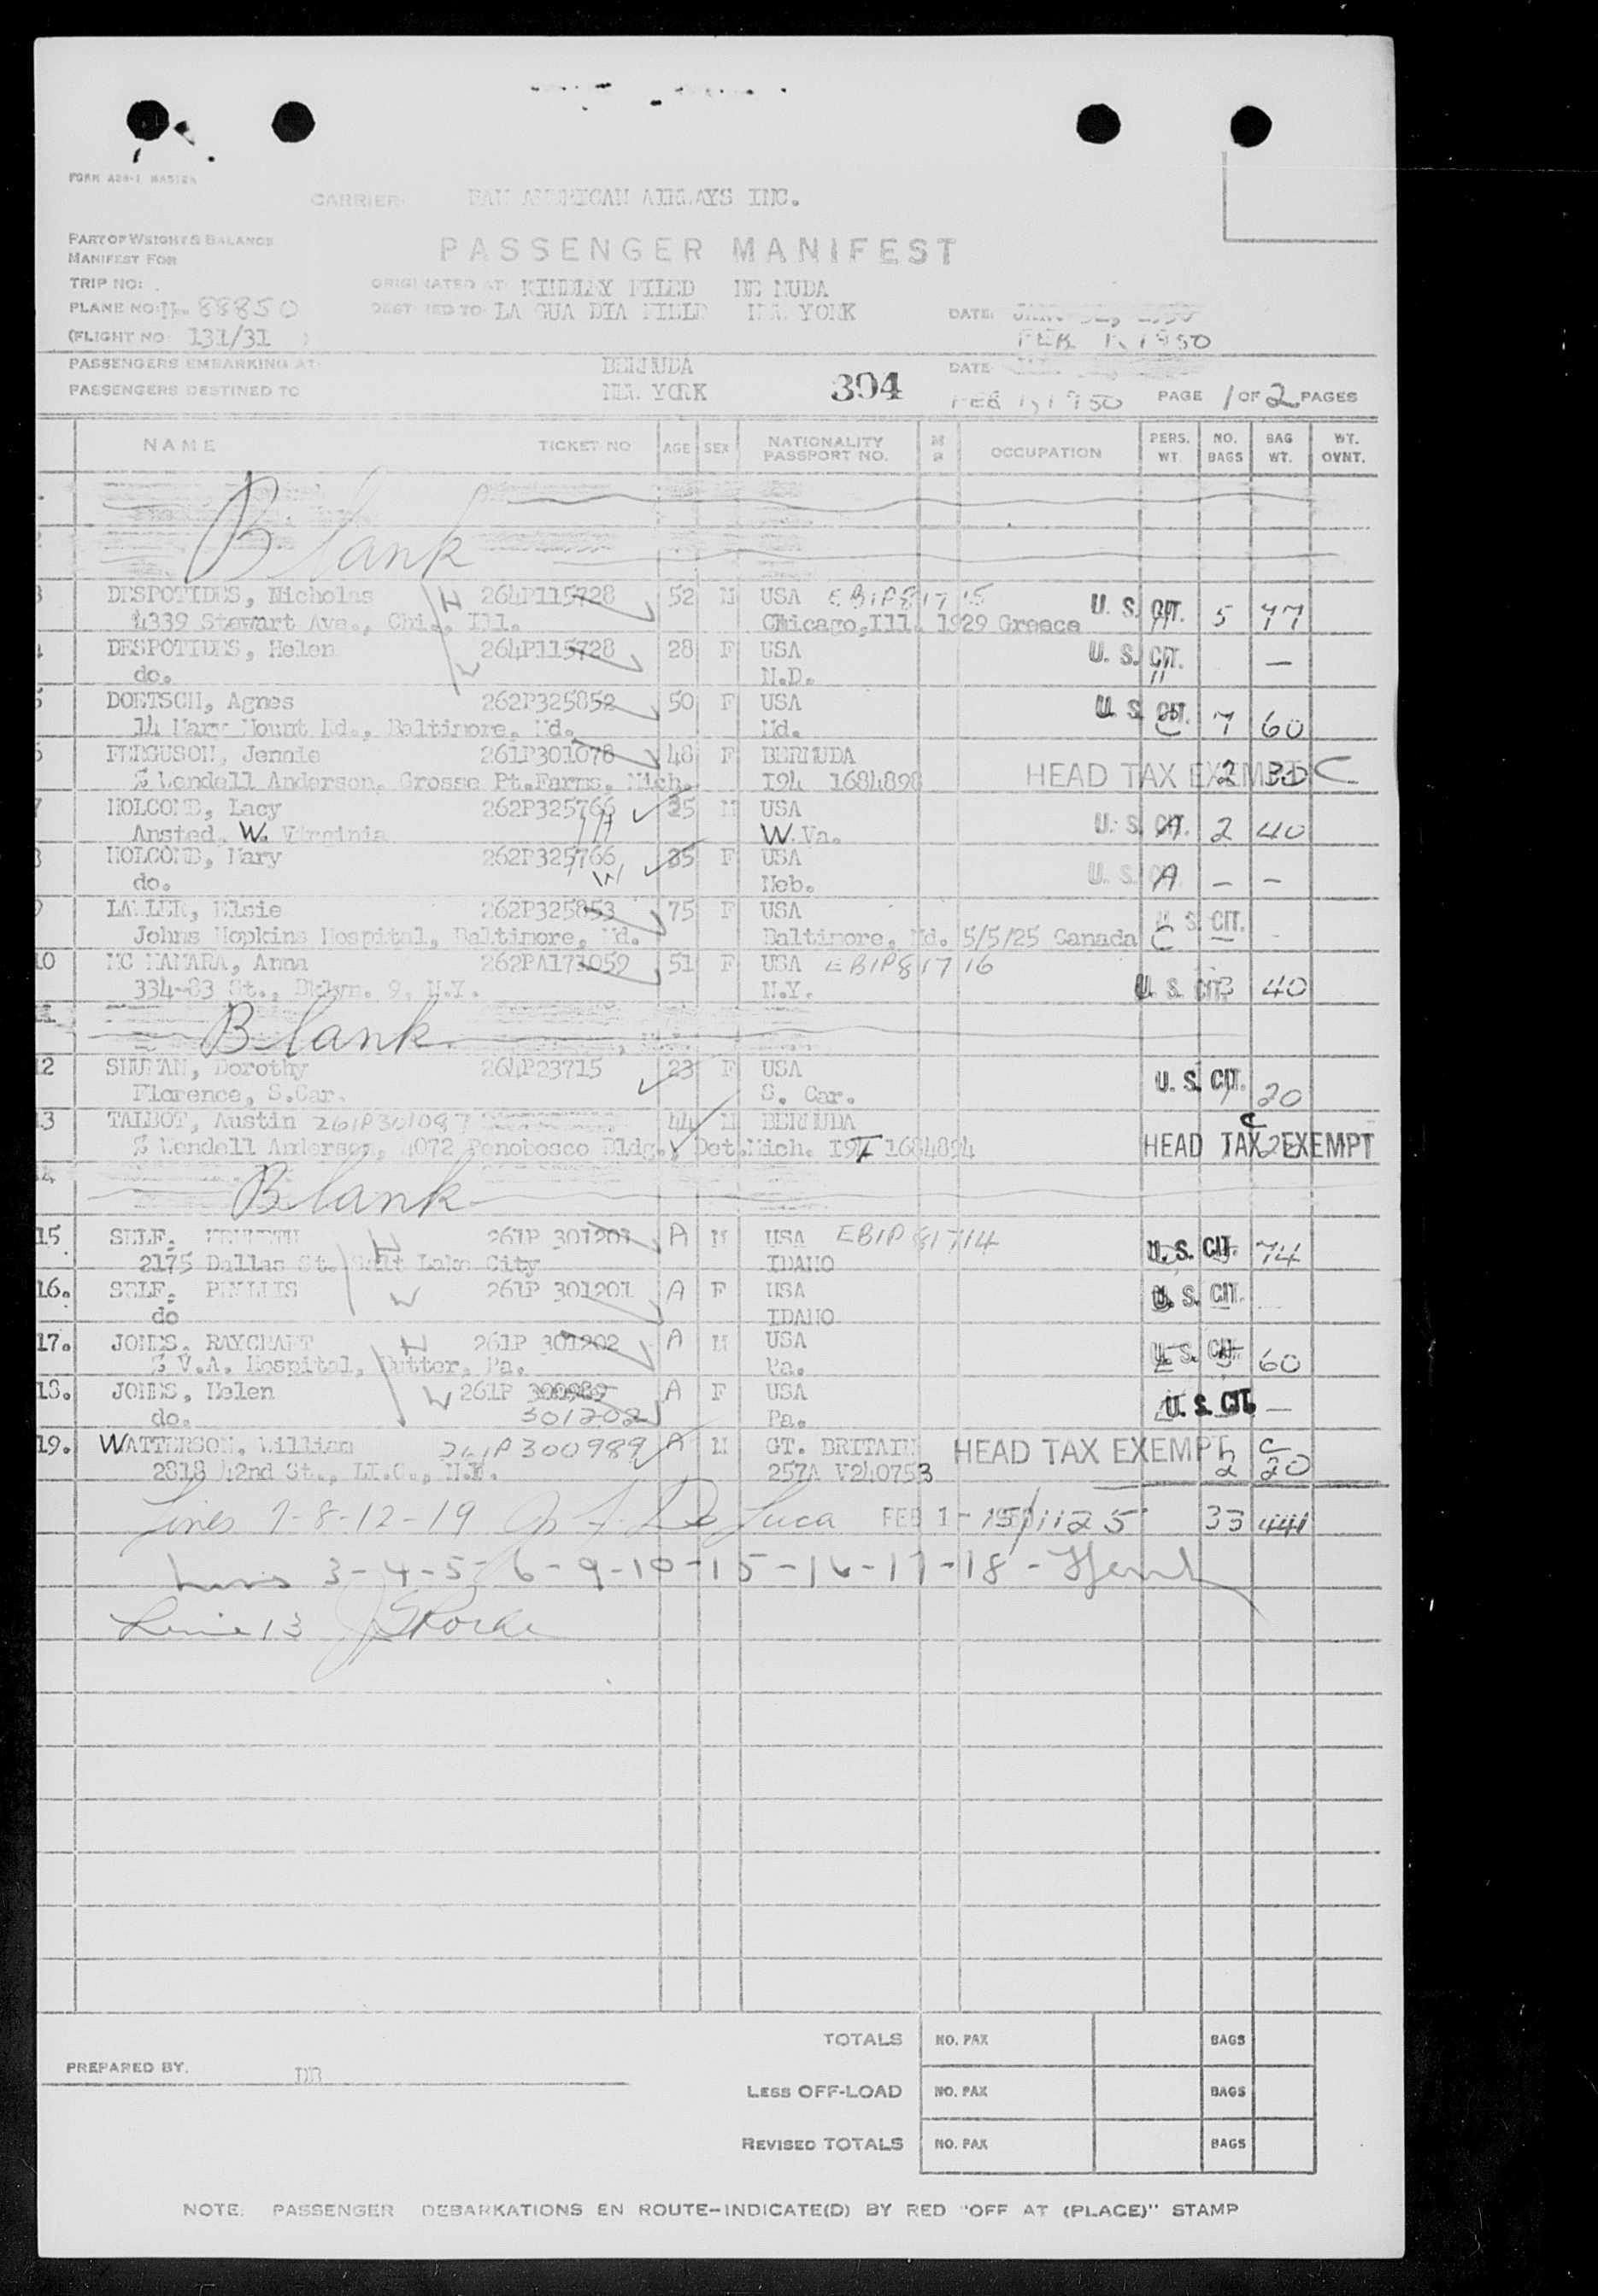 FORM
CARRIER: PAN AMERICAN AIRWAYS INC.
PART OF WEIGHT & BALANCE
MANIFEST FOR
PASSENGER MANIFEST
TRIP NO:
ORIGINATED AT KINDLEY FILED BERMUDA
PLANE NO: N- 88850
DESTINED TO: LA GUA DIA FIELD NEW YORK
DATE:
FEB 1, 1950
(FLIGHT NO 131/31 )
PASSENGERS EMBARKING AT: BERMUDA
DATE
PASSENGERS DESTINED TO NEW YORK 304 FEB 1, 1950 PAGE 1 OF 2 PAGES
NAME TICKET NO AGE SEX NATIONALITY PASSPORT NO. OCCUPATION PERS. WT. NO. BAGS BAG WT. WT. OVNT.
Blank
3 DESPOTIDES, Nicholas H 264P115728 52 M USA EBIP81715 U. S. CIT. 5 77
4339 Stewart Ave., Chi., Ill. Chicago, Ill. 1929 Greece
DESPOTIDES, Helen W 264P115728 28 F USA U. S. CIT. —
do. N.D.
DOETSCH, Agnes 262P325852 50 F USA U. S. CIT. 7 60
14 Mary Mount Rd., Baltimore, Md. Md.
FERGUSON, Jennie 261P301078 48 F BERMUDA
% Wendell Anderson, Grosse Pt.Farms, Mich. I94 1684898 HEAD TAX EXEMPT 2 C
HOLCOMB, Lacy 262P325766 H 35 M USA U. S. CIT. A 2 40
Ansted, W. Virginia W.Va.
HOLCOMB, Mary 262P325766 W 35 F USA U. S. A — —
do. Neb.
LAWLER, Elsie 262P325853 75 F USA U. S. CIT.
Johns Hopkins Hospital, Baltimore, Md. Baltimore, Md. 5/5/25 Canada
10 MC NAMARA, Anna 262PA171059 51 F USA EBIP81716
334-83 St., Bklyn. 9, N.Y. N.Y. U. S. CIT. 3 40
Blank
12 SHUMAN, Dorothy 264P23715 23 F USA U. S. CIT. 20
Florence, S.Car. S. Car.
13 TALBOT, Austin 261P301087 44 M BERMUDA C
% Wendell Anderson, 4072 Penobosco Bldg., Det.Mich. I94 1684894 HEAD TAX EXEMPT 2
Blank
15 SELF, KENNETH H 261P 301201 A M USA EBIP 81714 U. S. CIT. 74
2175 Dallas St. Salt Lake City IDAHO
16. SELF, PHYLLIS W 261P 301201 A F USA U. S. CIT.
do IDAHO
17. JONES, RAYCRAFT H 261P 301202 A M USA U. S. CIT. 60
% V.A. Hospital, Butter, Pa. Pa.
18. JONES, Helen W 261P 300989 A F USA U. S. CIT. —
do. 301202 Pa.
19. WATTERSON, William 261P300989 A M GT. BRITAIN HEAD TAX EXEMPT C
2818 42nd St., LI.C., N.Y. 257A V240753 2 20
Lines 7-8-12-19 De Luca FEB 1- 1125 33 441
Lines 3-4-5-6-9-10-15-16-17-18-
Line 13
TOTALS NO. PAX BAGS
PREPARED BY. DB
LESS OFF-LOAD NO. PAX BAGS
REVISED TOTALS NO. PAX BAGS
NOTE: PASSENGER DEBARKATIONS EN ROUTE-INDICATE(D) BY RED "OFF AT (PLACE)" STAMP